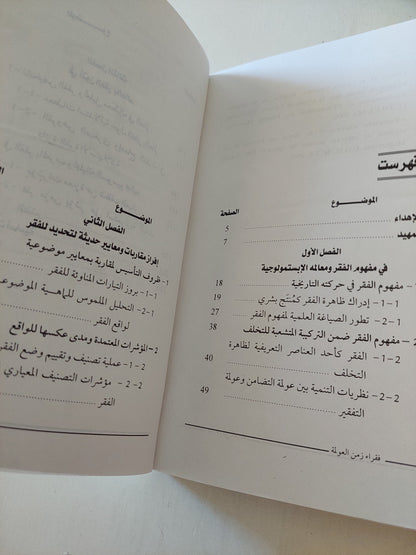 فهرست
الموضـــــوع الصفحة
الإهداء 5
تمهيد 7
الفصل الأول
في مفهوم الفقر ومعالمه الإبستمولوجية
مفهوم الفقر في حركته التاريخية 18
1-1- إدراك ظاهرة الفقر كمُنتَج بشري 19
2-1- تطور الصياغة العلمية لمفهوم الفقر 27
2- مفهوم الفقر ضمن التركيبة المتشعبة للتخلف 38
1-2- الفقر كأحد العناصر التعريفية لظاهرة
التخلف 40
2-2- نظريات التنمية بين عولة التضامن وعولة
التفقير 49
فقراء زمن العولة
الموضـــــوع
الفصل الثاني
إفراز مقاربات ومعايير حديثة لتحديد للفقر
1- ظروف التأسيس لمقاربة بمعايير موضوعية
1-1- بروز التيارات المناوئة للفقر
2-1- التحليل الملموس للماهية الموضوعية
لواقع الفقر
2- المؤشرات المعتمدة ومدى عكسها للواقع
1-2- عملية تصنيف وتقييم وضع الفقر
2-2- مؤشرات التصنيف المعياري
الفقر